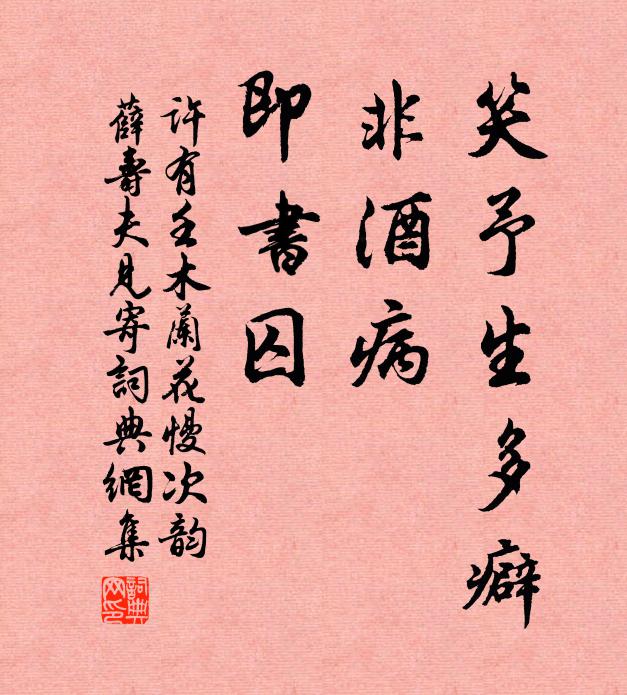 笑予生多癖
非酒病
即書囚
許有壬木蘭花慢次韵
薛壽夫見寄詞典網集
詞典網印